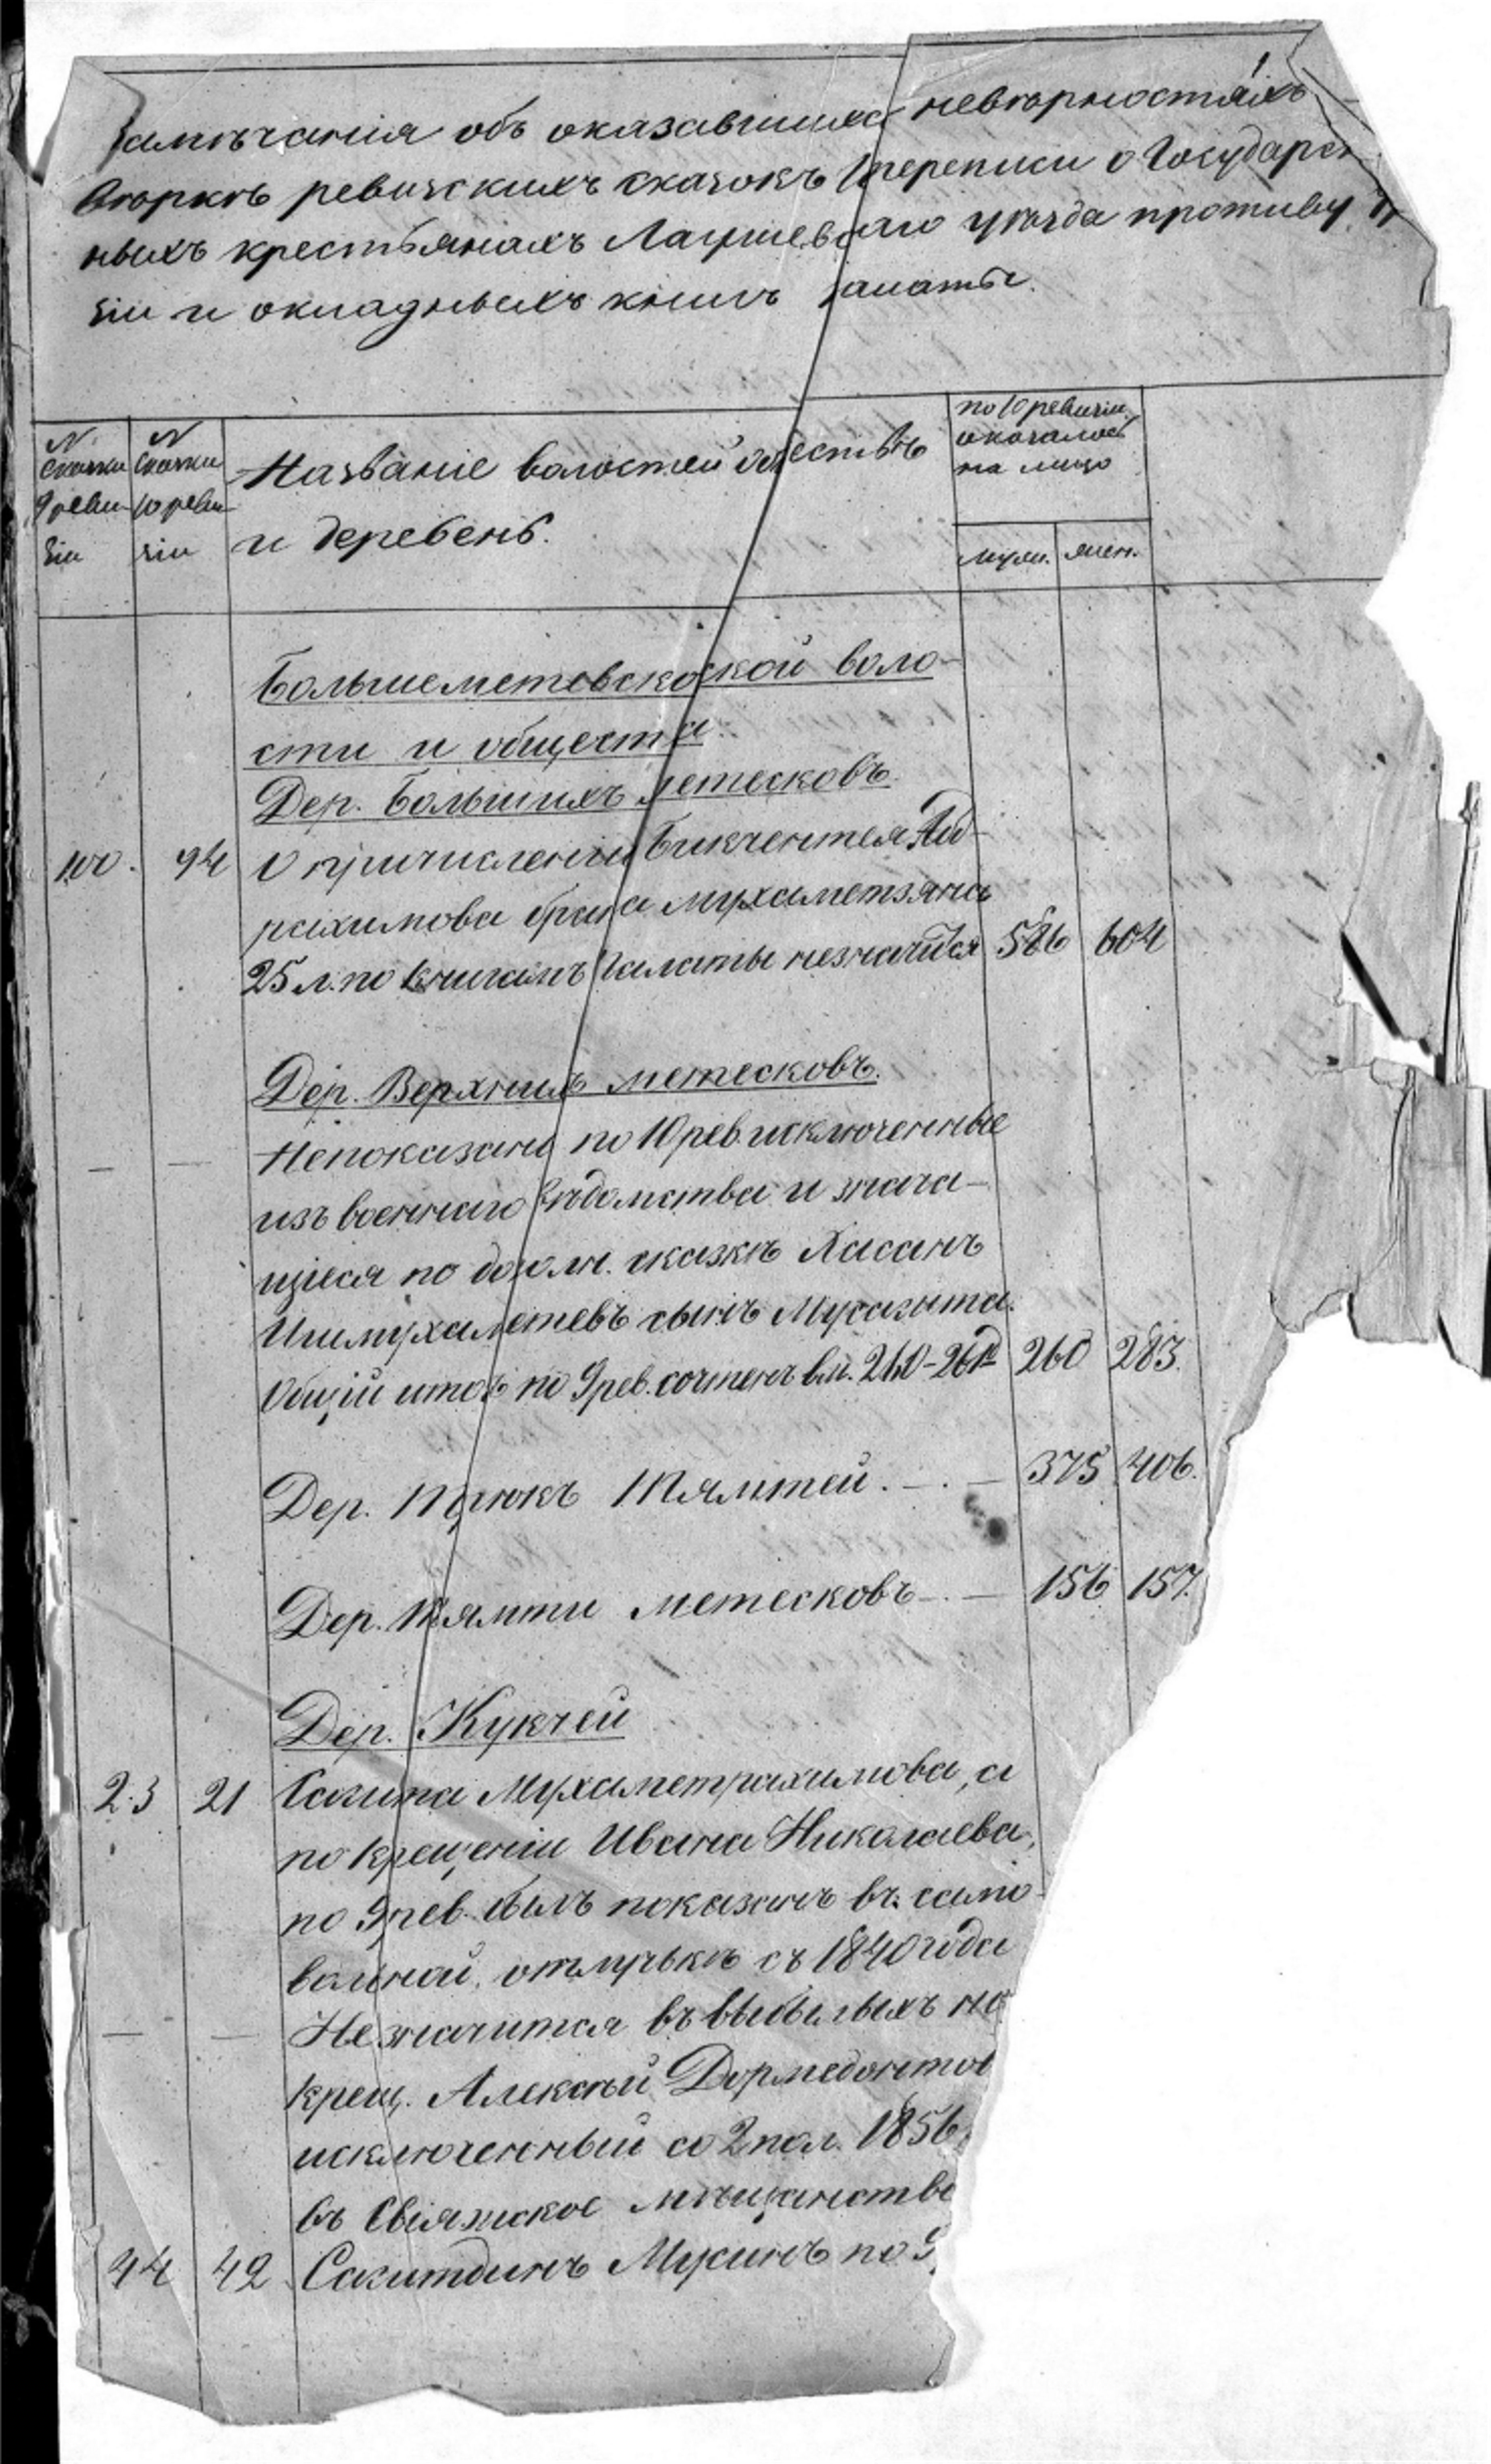 Замѣчанія объ оказавшихся невѣрностяхъ
вѣркѣ ревизскихъ сказокъ переписи о Государст
ныхъ крестьянахъ Лаишевскаго уѣзда противу
зіи и окладныхъ книгъ Палаты.
N сказки 9 реви зіи
N сказки 10 реви зіи
Названіе волостей обществъ
и деревень.
по 10 ревизіи
оказалось
на лицо
муж. жен.
Большеметевско ской воло-
сти и общества.
Дер. Большихъ метесковъ.
100. 94 О причисленіи Бикчентея Аб-
рахимова брата Мухаметзяна
25 л. по книгамъ Палаты незначится 586 604
Дер. Верхнихъ метесковъ.
— — Непоказаны по 10 рев. исключенные
изъ военнаго вѣдомства и знача-
щіеся по допол. сказкѣ Хасанъ
Ишмухаметевъ сынъ Мусагита.
Общій итогъ по 9 рев. сочтенъ вм. 260 283.
Дер. Тюкъ Тямтей. — . — 375 406.
Дер. Тямти метесковъ — . — 156 157.
Дер. Кукчей
23 21 Сагита Мухаметрахимова, а
по крещеніи Ивана Николаева,
по 9 рев. былъ показанъ въ само-
вольной отлучкѣ съ 1840 года
— — Незначится въ выбылыхъ но
крещ. Алексѣй Дормедонтов
исключенный со 2 пол. 1856
въ Свіяжское мѣщанство
44 42 Сагитдинъ Мусинъ по 9